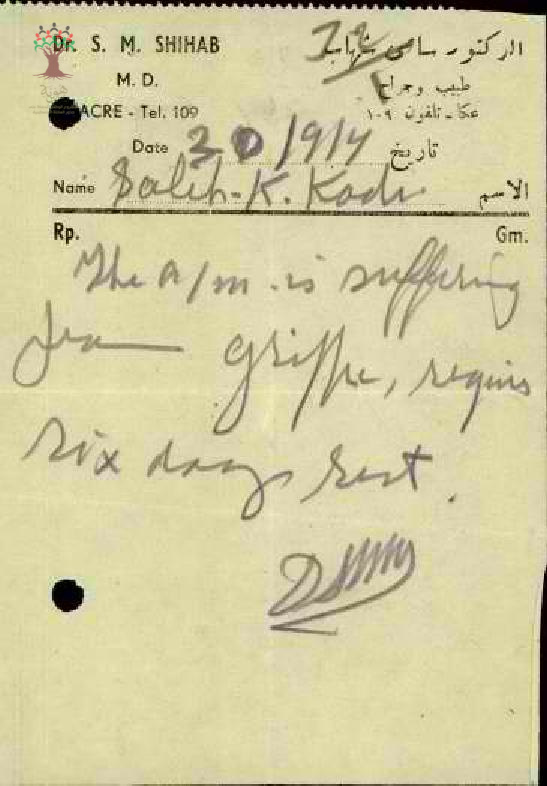 Dr. S. M. SHIHAB
الدكتور سامي شهاب
M. D.
طبيب وجراح
ACRE - Tel. 109
عكا - تلفون ١٠٩
Date 30/9/4 تاريخ
Name Saleh. K. Kadi الاسم
Rp. Gm.
The a/m. is suffering
from grippe, requires
six days rest.